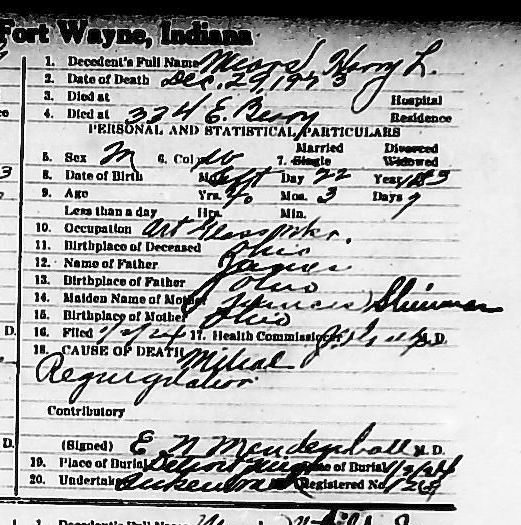 Fort Wayne, Indiana
1. Decedent's Full Name Mears, Harry L.
2. Date of Death Dec. 29, 1923
3. Died at Hospital
4. Died at 334 E. Berry Residence
PERSONAL AND STATISTICAL PARTICULARS
Married Divorced
5. Sex M 6. Col W 7. Single Widowed
8. Date of Birth Mo. Sept Day 22 Year
9. Age Yrs. 40 Mos. 3 Days 7
Less than a day Hrs. Min.
10. Occupation Art Glass Wkr.
11. Birthplace of Deceased Ohio
12. Name of Father James
13. Birthplace of Father Ohio
14. Maiden Name of Mother Frances
15. Birthplace of Mother Ohio
D. 16. Filed 17. Health Commissioner M.D.
18. CAUSE OF DEATH Mitral
Regurgitation
Contributory
D. (Signed) E N Mendenhall M.D.
19. Place of Burial Date of Burial 1/2/24
20. Undertaker Registered No.
1. Decedent's Full Name